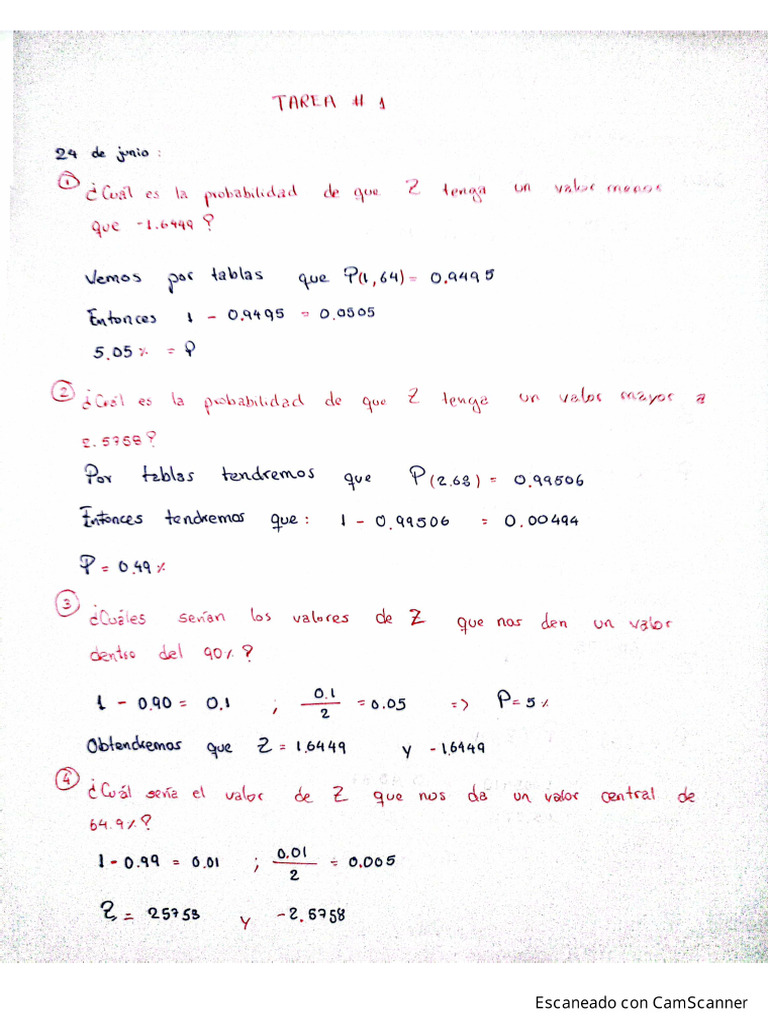 TAREA # 1
24 de junio :
① ¿Cuál es la probabilidad de que Z tenga un valor menor
que -1.6449?
Vemos por tablas que P(1,64) = 0.9495
Entonces 1 - 0.9495 = 0.0505
5.05 % = P
② ¿Cuál es la probabilidad de que Z tenga un valor mayor a
2.5758?
Por tablas tendremos que P(2.58) = 0.99506
Entonces tendremos que: 1 - 0.99506 = 0.00494
P = 0.49 %
③ ¿Cuáles serían los valores de Z que nos den un valor
dentro del 90%?
1 - 0.90 = 0.1 ; 0.1/2 = 0.05 => P = 5 %
Obtendremos que Z = 1.6449 y -1.6449
④ ¿Cuál sería el valor de Z que nos da un valor central de
64.9%?
1 - 0.99 = 0.01 ; 0.01/2 = 0.005
Z = 25758 y -2.5758
Escaneado con CamScanner